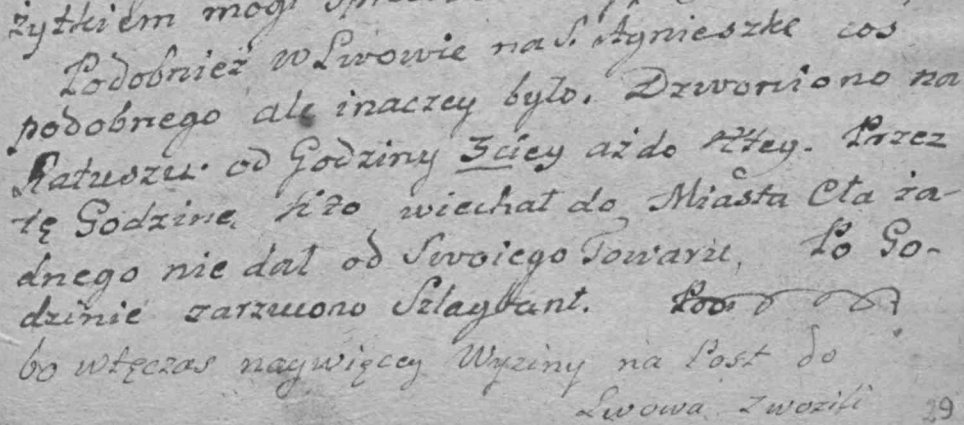 żytkiem mogł
Podobnież w Lwowie na S. Agnieszkę cos
podobnego ale inaczey było. Dzwoniono na
Ratuszu od Godziny 3ciey aż do 4tey. Przez
tę Godzinę, kto wiechał do Miasta Cła ża-
dnego nie dał od Swoiego Towaru, Po Go-
dzinie zarzucono Szlagbant.
bo wtęczas naywięcey Wyziny na Post do
Lwowa zwozili
29